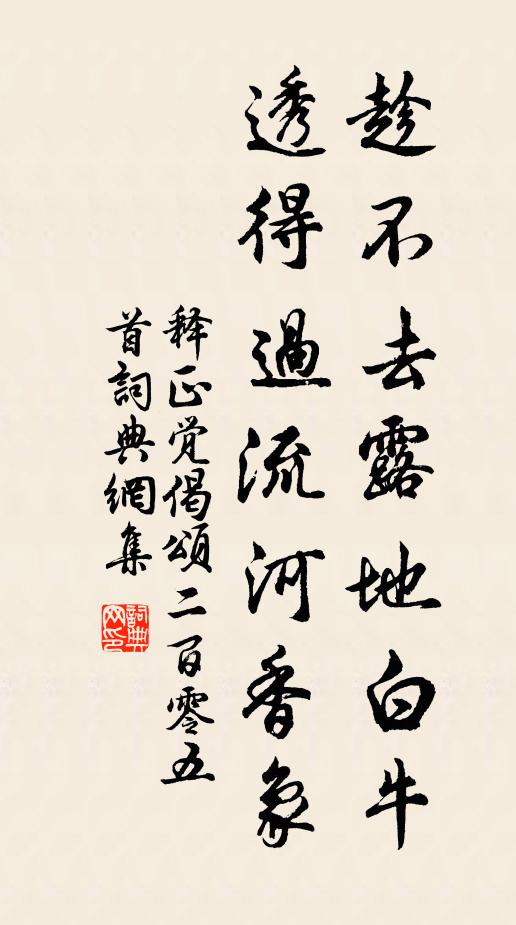 趁不去露地白牛
透得過流河香象
释正觉偈頌二百零五
首詞典網集
詞典
网印